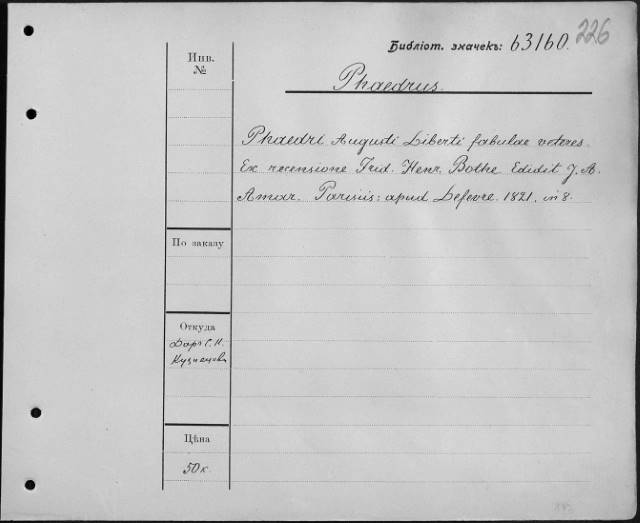 226
Библіот. значекъ: 63160.
Инв.
№
Phaedrus.
Phaedri Augusti Liberti fabulae veteres.
Ex recensione Frid. Henr. Bothe Edidit J. A.
Amar. Parisiis: apud Lefevre. 1821. in 8.
По заказу
Откуда
Даръ С. И.
Кузнецова
Цѣна
50 к.